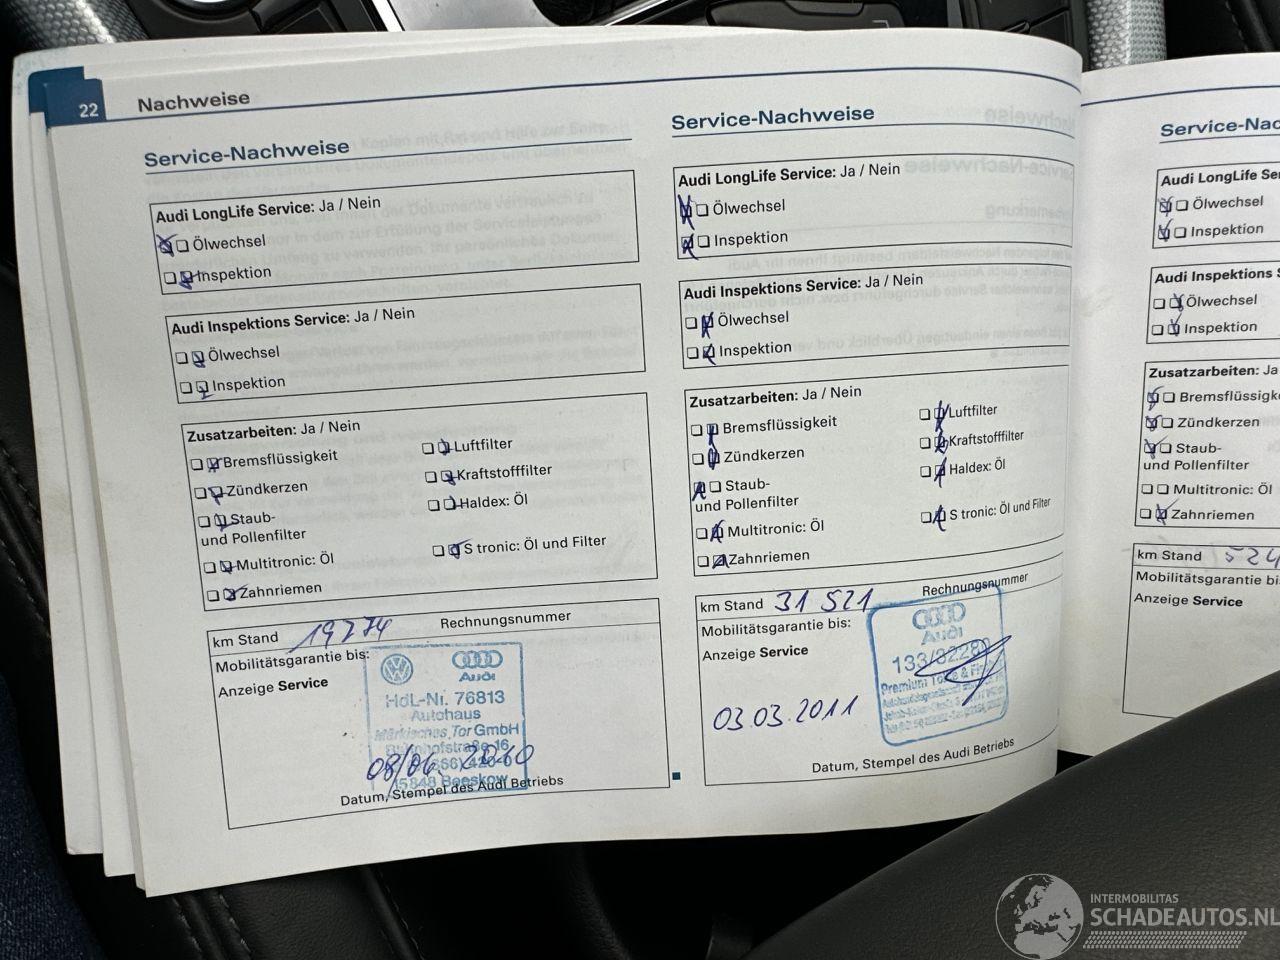 22
Nachweise
Service-Nachweise
Audi LongLife Service: Ja / Nein
Ölwechsel
Inspektion
Audi Inspektions Service: Ja / Nein
Ölwechsel
Inspektion
Zusatzarbeiten: Ja / Nein
Bremsflüssigkeit
Luftfilter
Zündkerzen
Kraftstofffilter
Staub-
und Pollenfilter
Haldex: Öl
Multitronic: Öl
S tronic: Öl und Filter
Zahnriemen
km Stand 19274
Rechnungsnummer
Mobilitätsgarantie bis:
Anzeige Service
Audi
HdL-Nr. 76813
Autohaus
Märkisches Tor GmbH
Bahnhofstraße 16
15848 Beeskow
08/06. 2010
Datum, Stempel des Audi Betriebs
Service-Nachweise
Audi LongLife Service: Ja / Nein
Ölwechsel
Inspektion
Audi Inspektions Service: Ja / Nein
Ölwechsel
Inspektion
Zusatzarbeiten: Ja / Nein
Bremsflüssigkeit
Luftfilter
Zündkerzen
Kraftstofffilter
Staub-
und Pollenfilter
Haldex: Öl
Multitronic: Öl
S tronic: Öl und Filter
Zahnriemen
km Stand 31 521
Rechnungsnummer
Mobilitätsgarantie bis:
Anzeige Service
Audi
03.03.2011
Datum, Stempel des Audi Betriebs
Service-Nac
Audi LongLife Se
Ölwechsel
Inspektion
Audi Inspektions S
Ölwechsel
Inspektion
Zusatzarbeiten: Ja
Bremsflüssigke
Zündkerzen
Staub-
und Pollenfilter
Multitronic: Öl
Zahnriemen
km Stand 524
Mobilitätsgarantie bis
Anzeige Service
INTERMOBILITAS
SCHADEAUTOS.NL